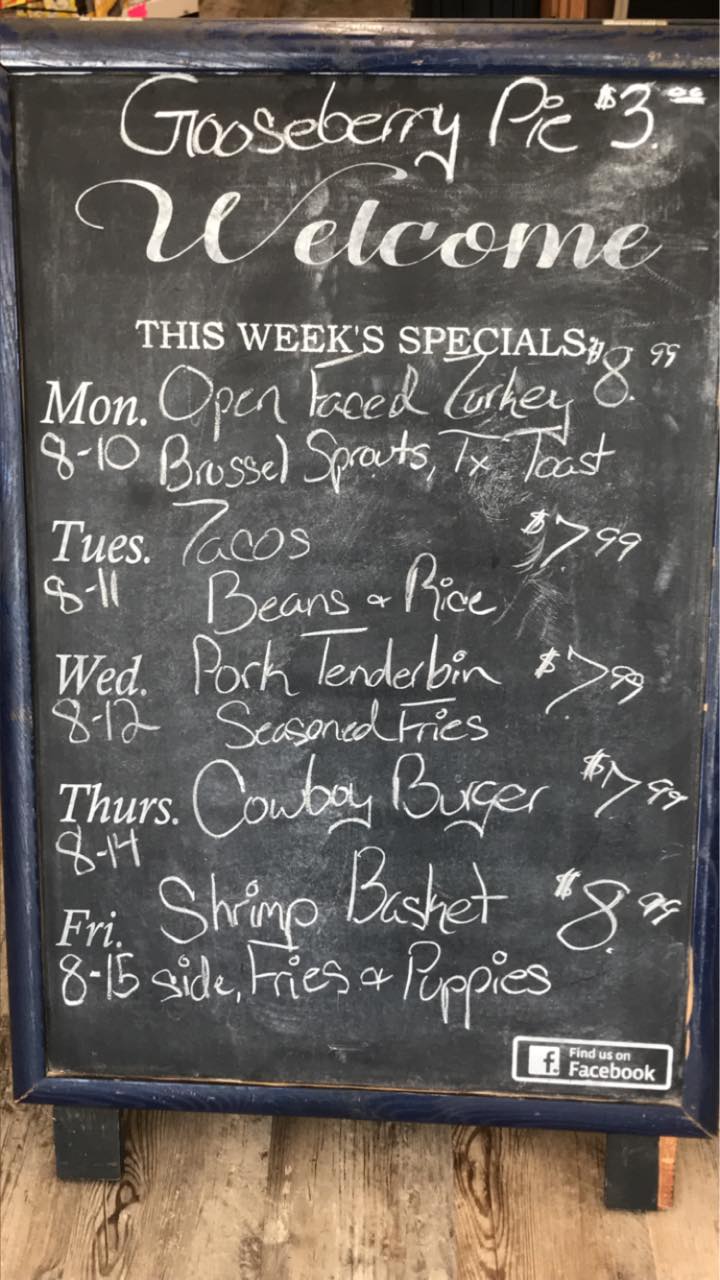 Gooseberry Pie $3.00
Welcome
THIS WEEK'S SPECIALS
Mon. Open Faced Turkey $8.99
8-10 Brussel Sprouts, Tx Toast
Tues. Tacos $7.99
8-11 Beans & Rice
Wed. Pork Tenderloin $7.99
8-12 Seasoned Fries
Thurs. Cowboy Burger $7.99
8-14
Fri. Shrimp Basket $8.99
8-15 side, Fries & Puppies
f Find us on
Facebook